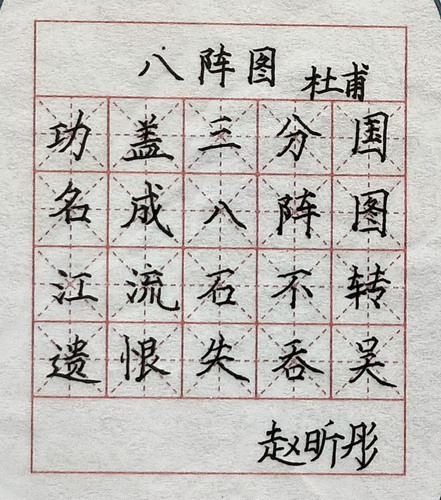 八阵图 杜甫
功盖三分国
名成八阵图
江流石不转
遗恨失吞吴
赵昕彤